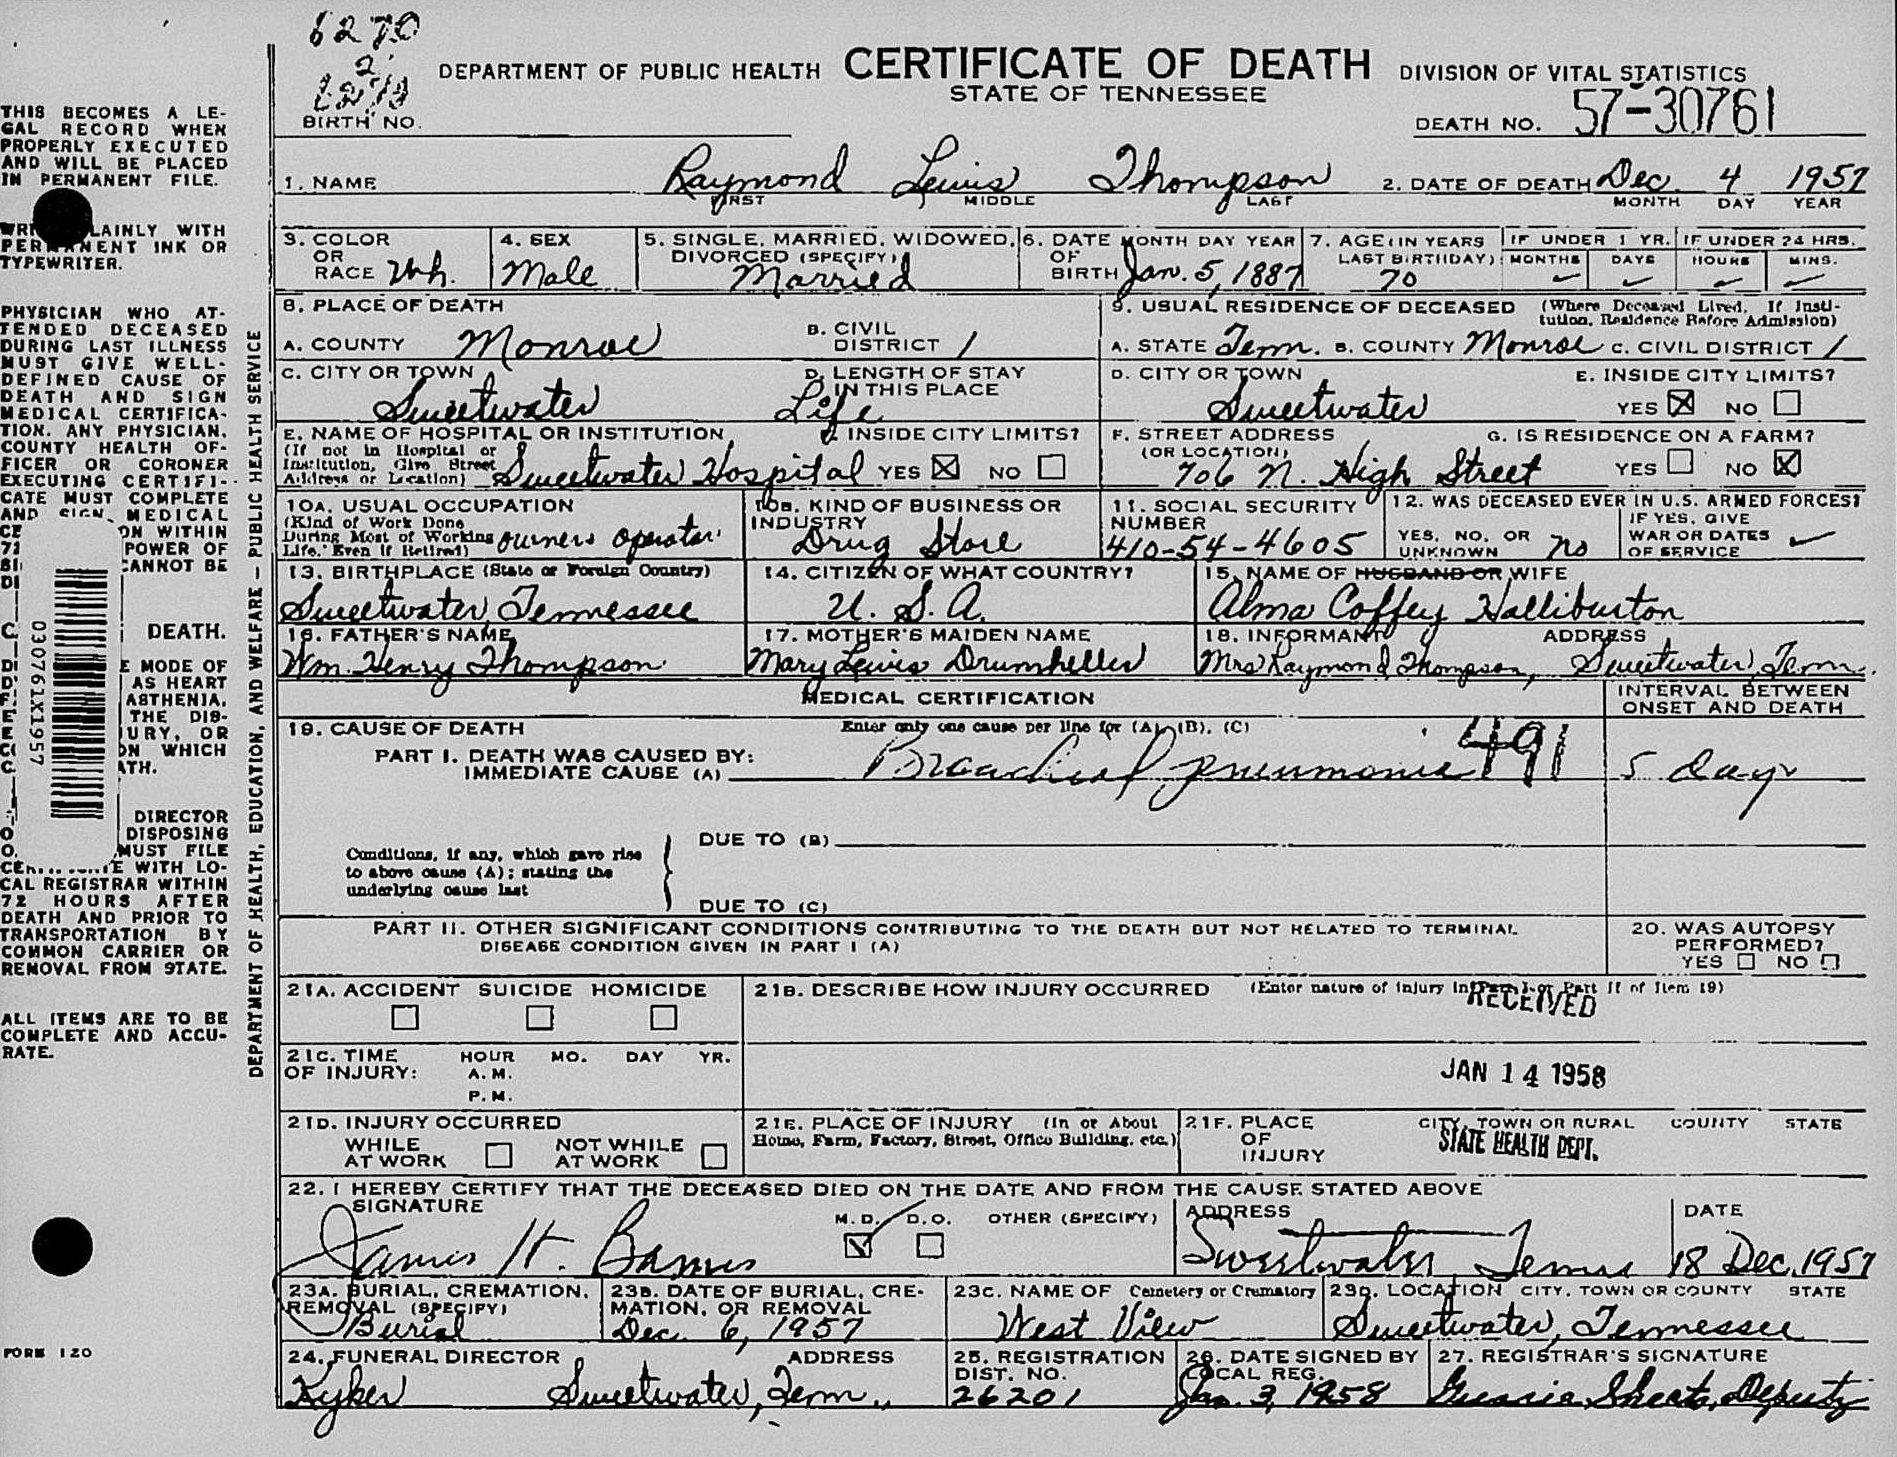 6270
2
DEPARTMENT OF PUBLIC HEALTH CERTIFICATE OF DEATH DIVISION OF VITAL STATISTICS
STATE OF TENNESSEE
BIRTH NO.
DEATH NO. 57-30761
1. NAME Raymond Lewis Thompson 2. DATE OF DEATH Dec. 4 1957
FIRST MIDDLE LAST MONTH DAY YEAR
3. COLOR OR RACE Wh.
4. SEX Male
5. SINGLE, MARRIED, WIDOWED, DIVORCED (SPECIFY) Married
6. DATE OF BIRTH MONTH DAY YEAR Jan. 5, 1887
7. AGE (IN YEARS LAST BIRTHDAY) 70
IF UNDER 1 YR. MONTHS DAYS
IF UNDER 24 HRS. HOURS MINS.
8. PLACE OF DEATH
A. COUNTY Monroe
B. CIVIL DISTRICT 1
C. CITY OR TOWN Sweetwater
D. LENGTH OF STAY IN THIS PLACE Life
E. NAME OF HOSPITAL OR INSTITUTION (If not in Hospital or Institution, Give Street Address or Location) Sweetwater Hospital
F. INSIDE CITY LIMITS? YES NO
9. USUAL RESIDENCE OF DECEASED (Where Deceased Lived, If Institution, Residence Before Admission)
A. STATE Tenn. B. COUNTY Monroe C. CIVIL DISTRICT 1
D. CITY OR TOWN Sweetwater
E. INSIDE CITY LIMITS? YES NO
F. STREET ADDRESS (OR LOCATION) 706 N. High Street
G. IS RESIDENCE ON A FARM? YES NO
10A. USUAL OCCUPATION (Kind of Work Done During Most of Working Life, Even if Retired) owners operator
10B. KIND OF BUSINESS OR INDUSTRY Drug Store
11. SOCIAL SECURITY NUMBER 410-54-4605
12. WAS DECEASED EVER IN U.S. ARMED FORCES?
YES, NO, OR UNKNOWN no
IF YES, GIVE WAR OR DATES OF SERVICE
13. BIRTHPLACE (State or Foreign Country) Sweetwater, Tennessee
14. CITIZEN OF WHAT COUNTRY? U. S. A.
15. NAME OF HUSBAND OR WIFE Alma Coffey Halliburton
16. FATHER'S NAME Wm. Henry Thompson
17. MOTHER'S MAIDEN NAME Mary Lewis Drumheller
18. INFORMANT ADDRESS Mrs Raymond Thompson, Sweetwater, Tenn.
MEDICAL CERTIFICATION
INTERVAL BETWEEN ONSET AND DEATH
19. CAUSE OF DEATH Enter only one cause per line for (A), (B), (C)
PART I. DEATH WAS CAUSED BY:
IMMEDIATE CAUSE (A) Bronchial pneumonia 491 5 days
DUE TO (B)
Conditions, if any, which gave rise
to above cause (A); stating the
underlying cause last
DUE TO (C)
PART II. OTHER SIGNIFICANT CONDITIONS CONTRIBUTING TO THE DEATH BUT NOT RELATED TO TERMINAL
DISEASE CONDITION GIVEN IN PART I (A)
20. WAS AUTOPSY PERFORMED? YES NO
21A. ACCIDENT SUICIDE HOMICIDE
21B. DESCRIBE HOW INJURY OCCURRED (Enter nature of injury in Part I or Part II of Item 19)
RECEIVED
JAN 14 1958
STATE HEALTH DEPT.
21C. TIME OF INJURY: HOUR MO. DAY YR.
A.M.
P.M.
21D. INJURY OCCURRED
WHILE AT WORK NOT WHILE AT WORK
21E. PLACE OF INJURY (In or About Home, Farm, Factory, Street, Office Building, etc.)
21F. PLACE OF INJURY CITY, TOWN OR RURAL COUNTY STATE
22. I HEREBY CERTIFY THAT THE DECEASED DIED ON THE DATE AND FROM THE CAUSE STATED ABOVE
SIGNATURE James H. Barnes M.D. D.O. OTHER (SPECIFY)
ADDRESS Sweetwater Tenn
DATE 18 Dec. 1957
23A. BURIAL, CREMATION, REMOVAL (SPECIFY) Burial
23B. DATE OF BURIAL, CREMATION, OR REMOVAL Dec. 6, 1957
23C. NAME OF Cemetery or Crematory West View
23D. LOCATION CITY, TOWN OR COUNTY STATE Sweetwater, Tennessee
24. FUNERAL DIRECTOR ADDRESS Kyker Sweetwater, Tenn.
25. REGISTRATION DIST. NO. 26201
26. DATE SIGNED BY LOCAL REG. Jan. 3, 1958
27. REGISTRAR'S SIGNATURE Gussie Sheets, Deputy
THIS BECOMES A LE-
GAL RECORD WHEN
PROPERLY EXECUTED
AND WILL BE PLACED
IN PERMANENT FILE.
WITH
INK OR
TYPEWRITER.
PHYSICIAN WHO AT-
TENDED DECEASED
DURING LAST ILLNESS
MUST GIVE WELL-
DEFINED CAUSE OF
DEATH AND SIGN
MEDICAL CERTIFICA-
TION. ANY PHYSICIAN,
COUNTY HEALTH OF-
FICER OR CORONER
EXECUTING CERTIFI-
CATE MUST COMPLETE
AND SIGN MEDICAL
WITHIN
POWER OF
CANNOT BE
DEATH.
MODE OF
AS HEART
ASTHENIA,
THE DIS-
OR
WHICH
DIRECTOR
DISPOSING
MUST FILE
WITH LO-
CAL REGISTRAR WITHIN
72 HOURS AFTER
DEATH AND PRIOR TO
TRANSPORTATION BY
COMMON CARRIER OR
REMOVAL FROM STATE.
ALL ITEMS ARE TO BE
COMPLETE AND ACCU-
RATE.
FORM 120
030761X1957
DEPARTMENT OF HEALTH, EDUCATION, AND WELFARE — PUBLIC HEALTH SERVICE